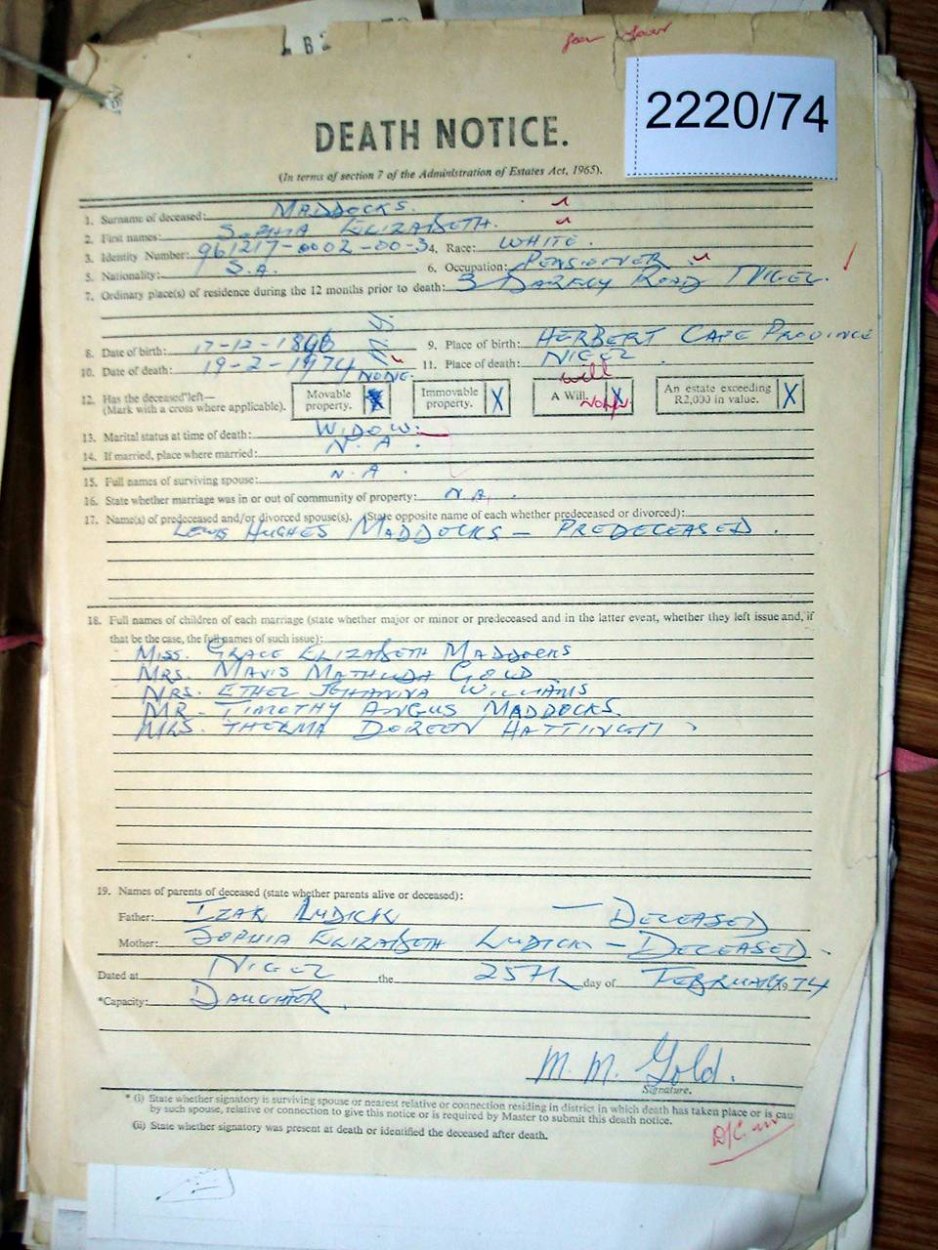 2220/74
DEATH NOTICE.
(In terms of section 7 of the Administration of Estates Act, 1965).
1. Surname of deceased: MADDOCKS.
2. First names: SOPHIA ELIZABETH.
3. Identity Number: 961217-0002-00-3 4. Race: WHITE.
5. Nationality: S.A. 6. Occupation: PENSIONER
7. Ordinary place(s) of residence during the 12 months prior to death: 3 ROAD NIGEL.
8. Date of birth: 17-12-1896 9. Place of birth: HERBERT CAPE PROVINCE
10. Date of death: 19-2-1974 11. Place of death: NIGEL.
NONE. will
12. Has the deceased left— (Mark with a cross where applicable). Movable property. X Immovable property. X A Will. X An estate exceeding R2,000 in value. X
13. Marital status at time of death: WIDOW.
14. If married, place where married: N.A.
15. Full names of surviving spouse: N.A.
16. State whether marriage was in or out of community of property: N.A.
17. Name(s) of predeceased and/or divorced spouse(s). (State opposite name of each whether predeceased or divorced):
LEWIS HUGHES MADDOCKS — PREDECEASED.
18. Full names of children of each marriage (state whether major or minor or predeceased and in the latter event, whether they left issue and, if
that be the case, the full names of such issue):
MISS. GRACE ELIZABETH MADDOCKS
MRS. MAVIS MATHILDA GOLD
MRS. ETHEL JOHANNA WILLIAMS
MR. TIMOTHY ANGUS MADDOCKS.
MRS. THELMA DOREEN HATTINGH
19. Names of parents of deceased (state whether parents alive or deceased):
Father: IZAK LUDICK — DECEASED
Mother: SOPHIA ELIZABETH LUDICK — DECEASED.
Dated at NIGEL the 25TH day of FEBRUARY 1974
*Capacity: DAUGHTER.
M. M. Gold.
Signature.
* (i) State whether signatory is surviving spouse or nearest relative or connection residing in district in which death has taken place or is cau
by such spouse, relative or connection to give this notice or is required by Master to submit this death notice.
(ii) State whether signatory was present at death or identified the deceased after death.